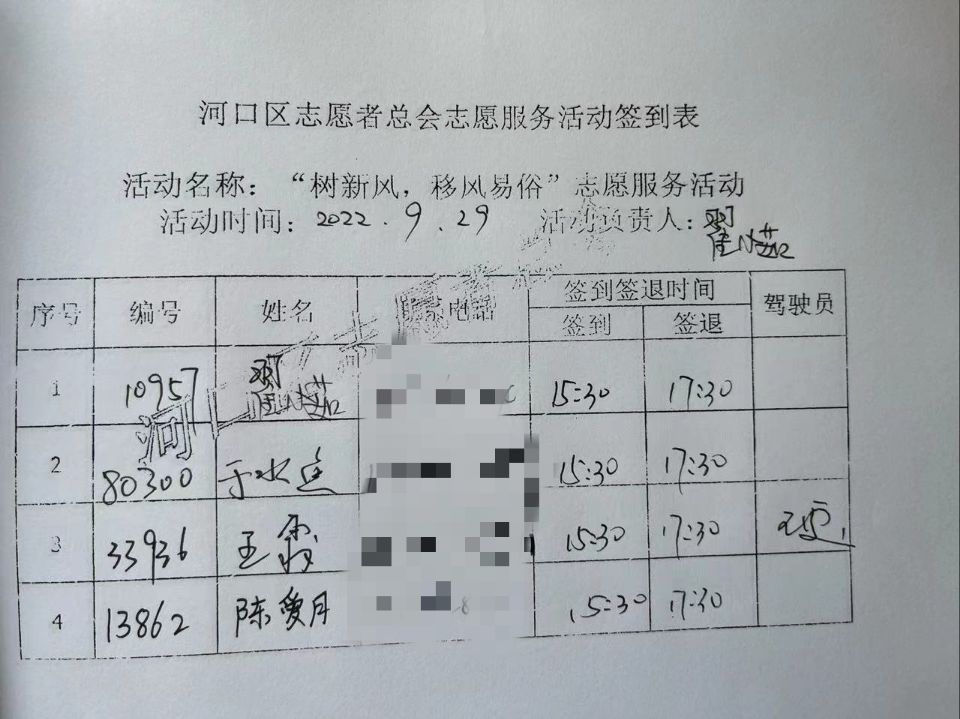 河口区志愿者总会志愿服务活动签到表
活动名称：“树新风，移风易俗”志愿服务活动
活动时间：2022.9.29 活动负责人：
序号 编号 姓名 电话 签到签退时间 驾驶员
签到 签退
1 10957 15:30 17:30
2 80300 于水 15:30 17:30
3 33936 王霞 15:30 17:30
4 13862 陈爱月 15:30 17:30